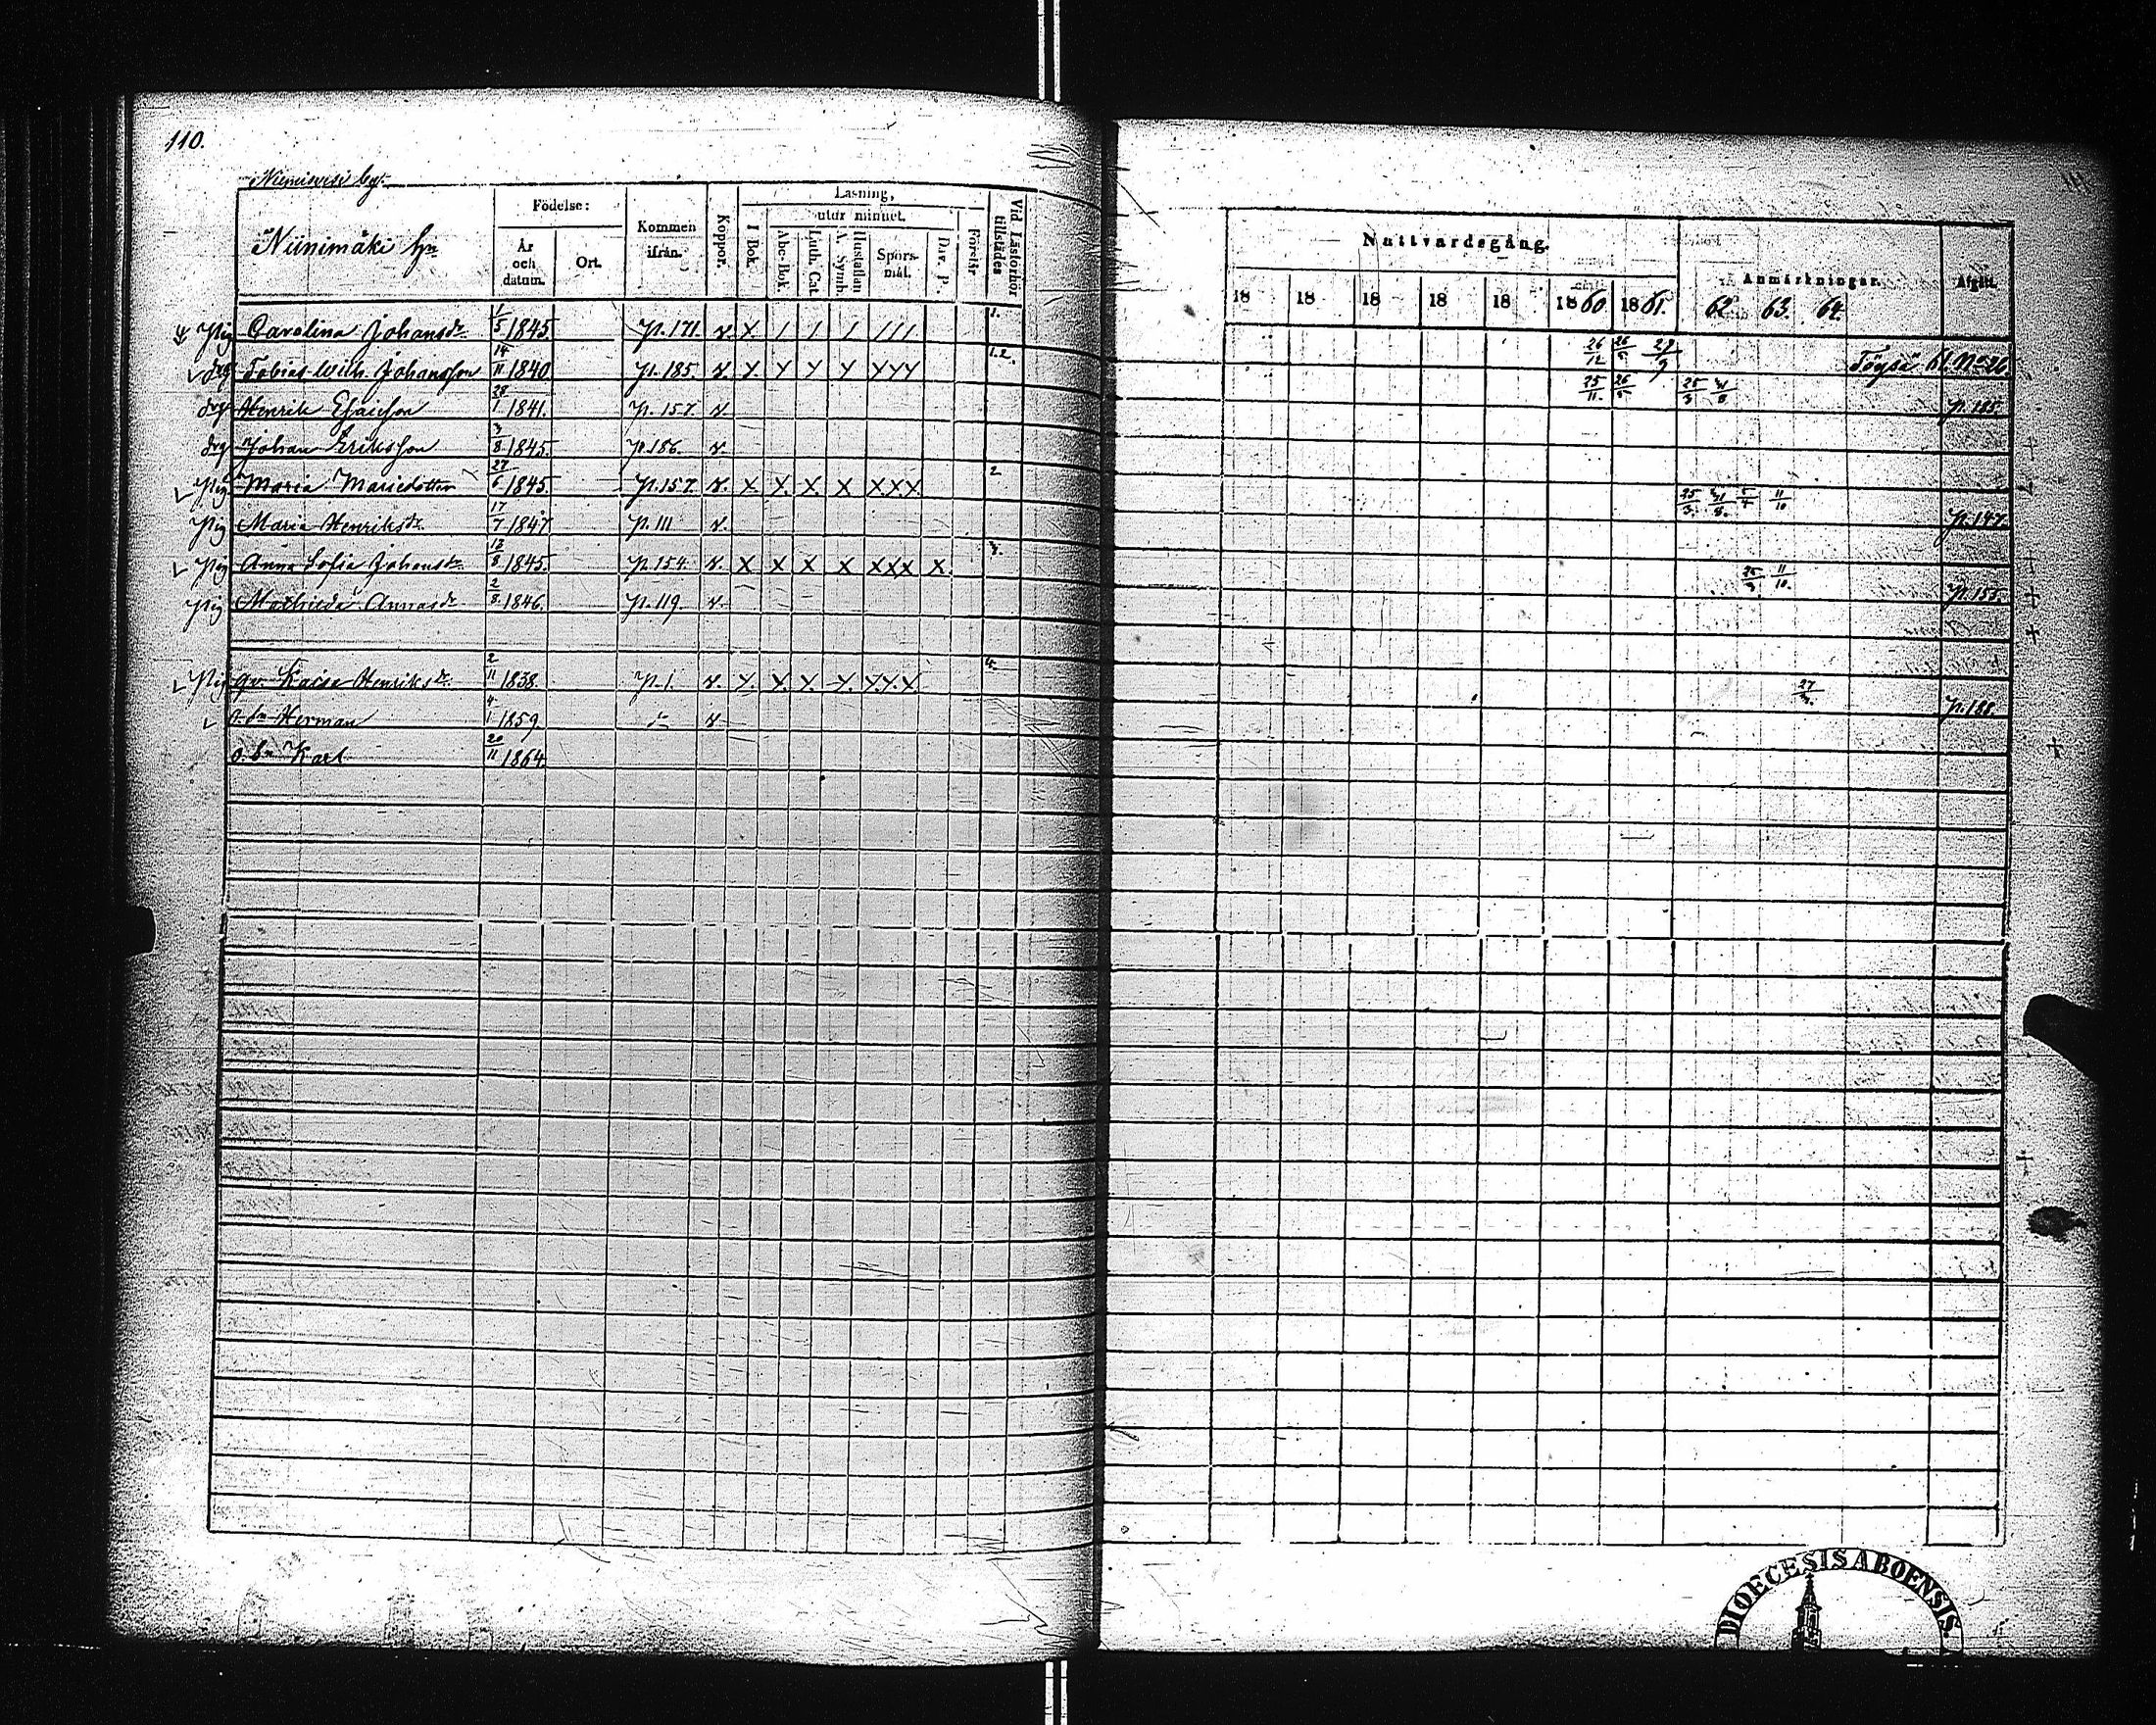 110.
Niinimäki hn
Födelse:
År och datum.
Ort.
Kommen ifrån.
Koppor.
Läsning,
utur minnet.
I Bok.
Abc-Bok
Luth. Cat.
A. Symb.
Hustaflan
Spörs-mål.
Dav. P.
Förstår
Vid Läsförhör tillstädes
Pig Carolina Johansdr 1/5 1845. p. 171. v. X / / / / / / 1.
drg Tobias Wilh. Johansson 14/11 1840 p. 185. v. X X X X X X X 1.2.
drg Henrik Esaiasson 28/1 1841. p. 157. v.
drg Johan Eriksson 3/8 1845. p. 186. v.
Pig Maria Mariedotter 27/6 1845. p. 157. v. X X X X X X X 2
Pig Maria Henriksdr 17/7 1847 p. 111 v.
Pig Anna Sofia Johansdr 13/8 1845. p. 154. v. X X X X X X X X 3.
Pig Annasdr 2/8 1846. p. 119. v.
Pig qv. Kaisa Henriksdr 2/11 1838. p. 1. v. X X X X X X X 4.
o. sn Herman 4/1 1859. v
o. sn Karl 20/11 1864.
Nattvardsgång.
Anmärkningar.
Afgått.
18 18 18 18 18 1860 1861. 62 63. 64.
26/12 29/9 Töysä 61. No 26
25/11. p. 185.
25/3 11/10 p. 147.
11/10. p. 155.
p. 188.
DIOECESIS ABOENSIS.